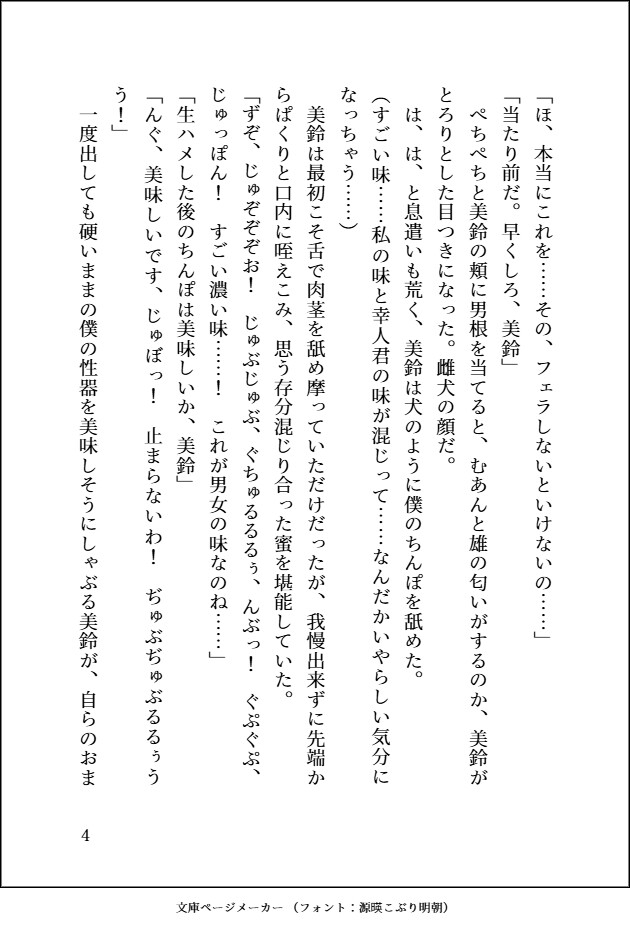 「ほ、本当にこれを……その、フェラしないといけないの……」
「当たり前だ。早くしろ、美鈴」
　ぺちぺちと美鈴の頬に男根を当てると、むあんと雄の匂いがするのか、美鈴が
とろりとした目つきになった。雌犬の顔だ。
　は、は、と息遣いも荒く、美鈴は犬のように僕のちんぽを舐めた。
（すごい味……私の味と幸人君の味が混じって……なんだかいやらしい気分に
なっちゃう……）
　美鈴は最初こそ舌で肉茎を舐め摩っていただけだったが、我慢出来ずに先端か
らぱくりと口内に咥えこみ、思う存分混じり合った蜜を堪能していた。
「ずぞ、じゅぞぞぞお！　じゅぶじゅぶ、ぐちゅるるるぅ、んぶっ！　ぐぷぐぷ、
じゅっぽん！　すごい濃い味……！　これが男女の味なのね……」
「生ハメした後のちんぽは美味しいか、美鈴」
「んぐ、美味しいです、じゅぼっ！　止まらないわ！　ぢゅぶぢゅぶるるぅう
う！」
　一度出しても硬いままの僕の性器を美味しそうにしゃぶる美鈴が、自らのおま
4
文庫ページメーカー（フォント：源暎こぶり明朝）